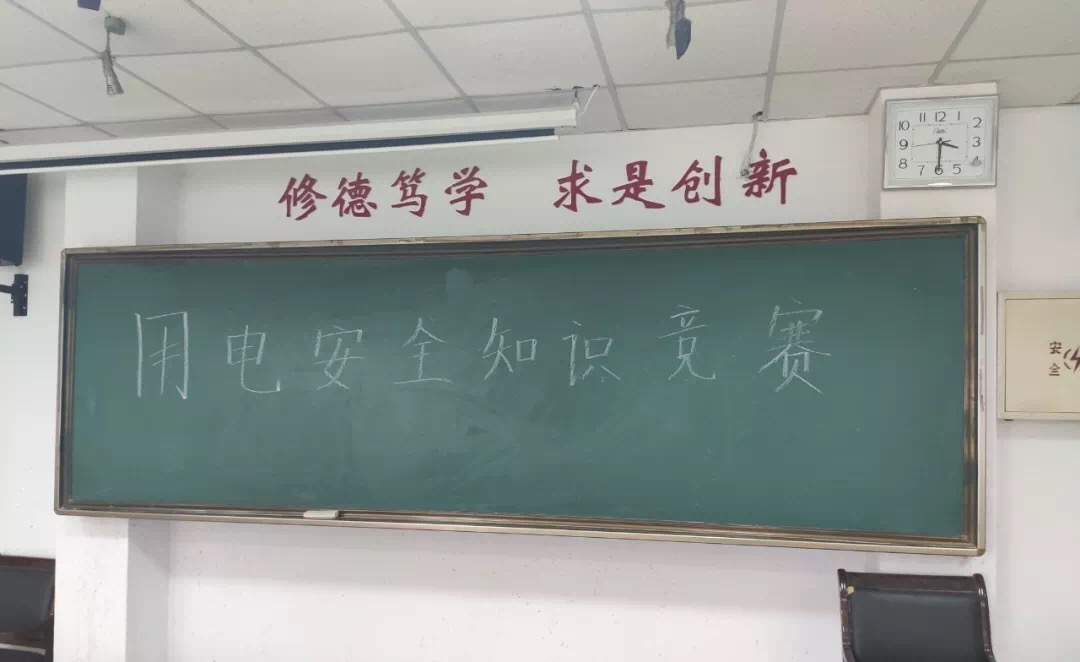 修德笃学 求是创新
11 12 1
10 2
9 3
8
7 6 5
用电安全知识竞赛
安全